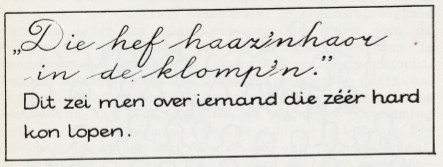 „Die hef haaz'nhaor
in de klomp'n.”
Dit zei men over iemand die zéér hard
kon lopen.